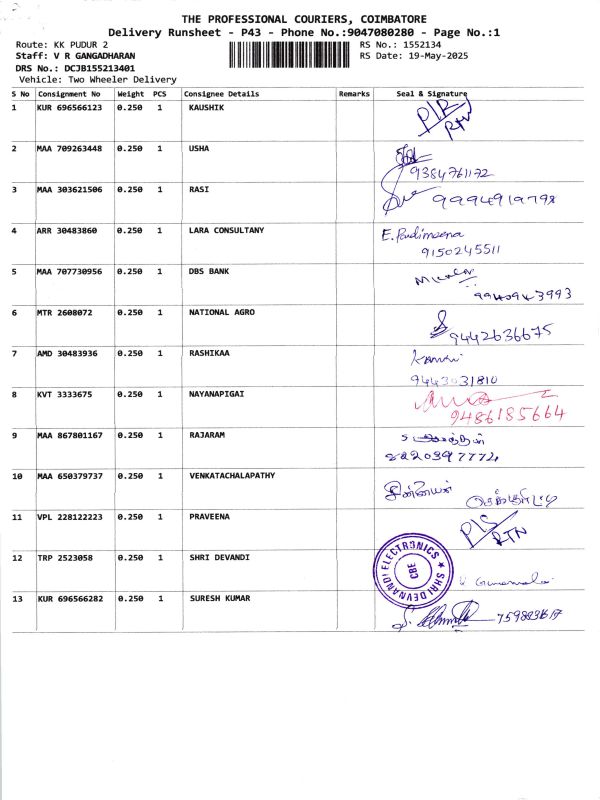 THE PROFESSIONAL COURIERS, COIMBATORE
Delivery Runsheet - P43 - Phone No.:9047080280 - Page No.:1
Route: KK PUDUR 2 RS No.: 1552134
Staff: V R GANGADHARAN RS Date: 19-May-2025
DRS No.: DCJB155213401
Vehicle: Two Wheeler Delivery
S No Consignment No Weight PCS Consignee Details Remarks Seal & Signature
1 KUR 696566123 0.250 1 KAUSHIK
RTN
2 MAA 709263448 0.250 1 USHA
9384761172
3 MAA 303621506 0.250 1 RASI 9994919798
4 ARR 30483860 0.250 1 LARA CONSULTANY
9150245511
5 MAA 707730956 0.250 1 DBS BANK
9940943993
6 MTR 2608072 0.250 1 NATIONAL AGRO
9442636675
7 AMD 30483936 0.250 1 RASHIKAA
9443031810
8 KVT 3333675 0.250 1 NAYANAPIGAI
9486185664
9 MAA 867801167 0.250 1 RAJARAM
8220397774
10 MAA 650379737 0.250 1 VENKATACHALAPATHY
11 VPL 228122223 0.250 1 PRAVEENA
RTN
12 TRP 2523058 0.250 1 SHRI DEVANDI
SHRI DEVNANDI ELECTRONICS
CBE
13 KUR 696566282 0.250 1 SURESH KUMAR